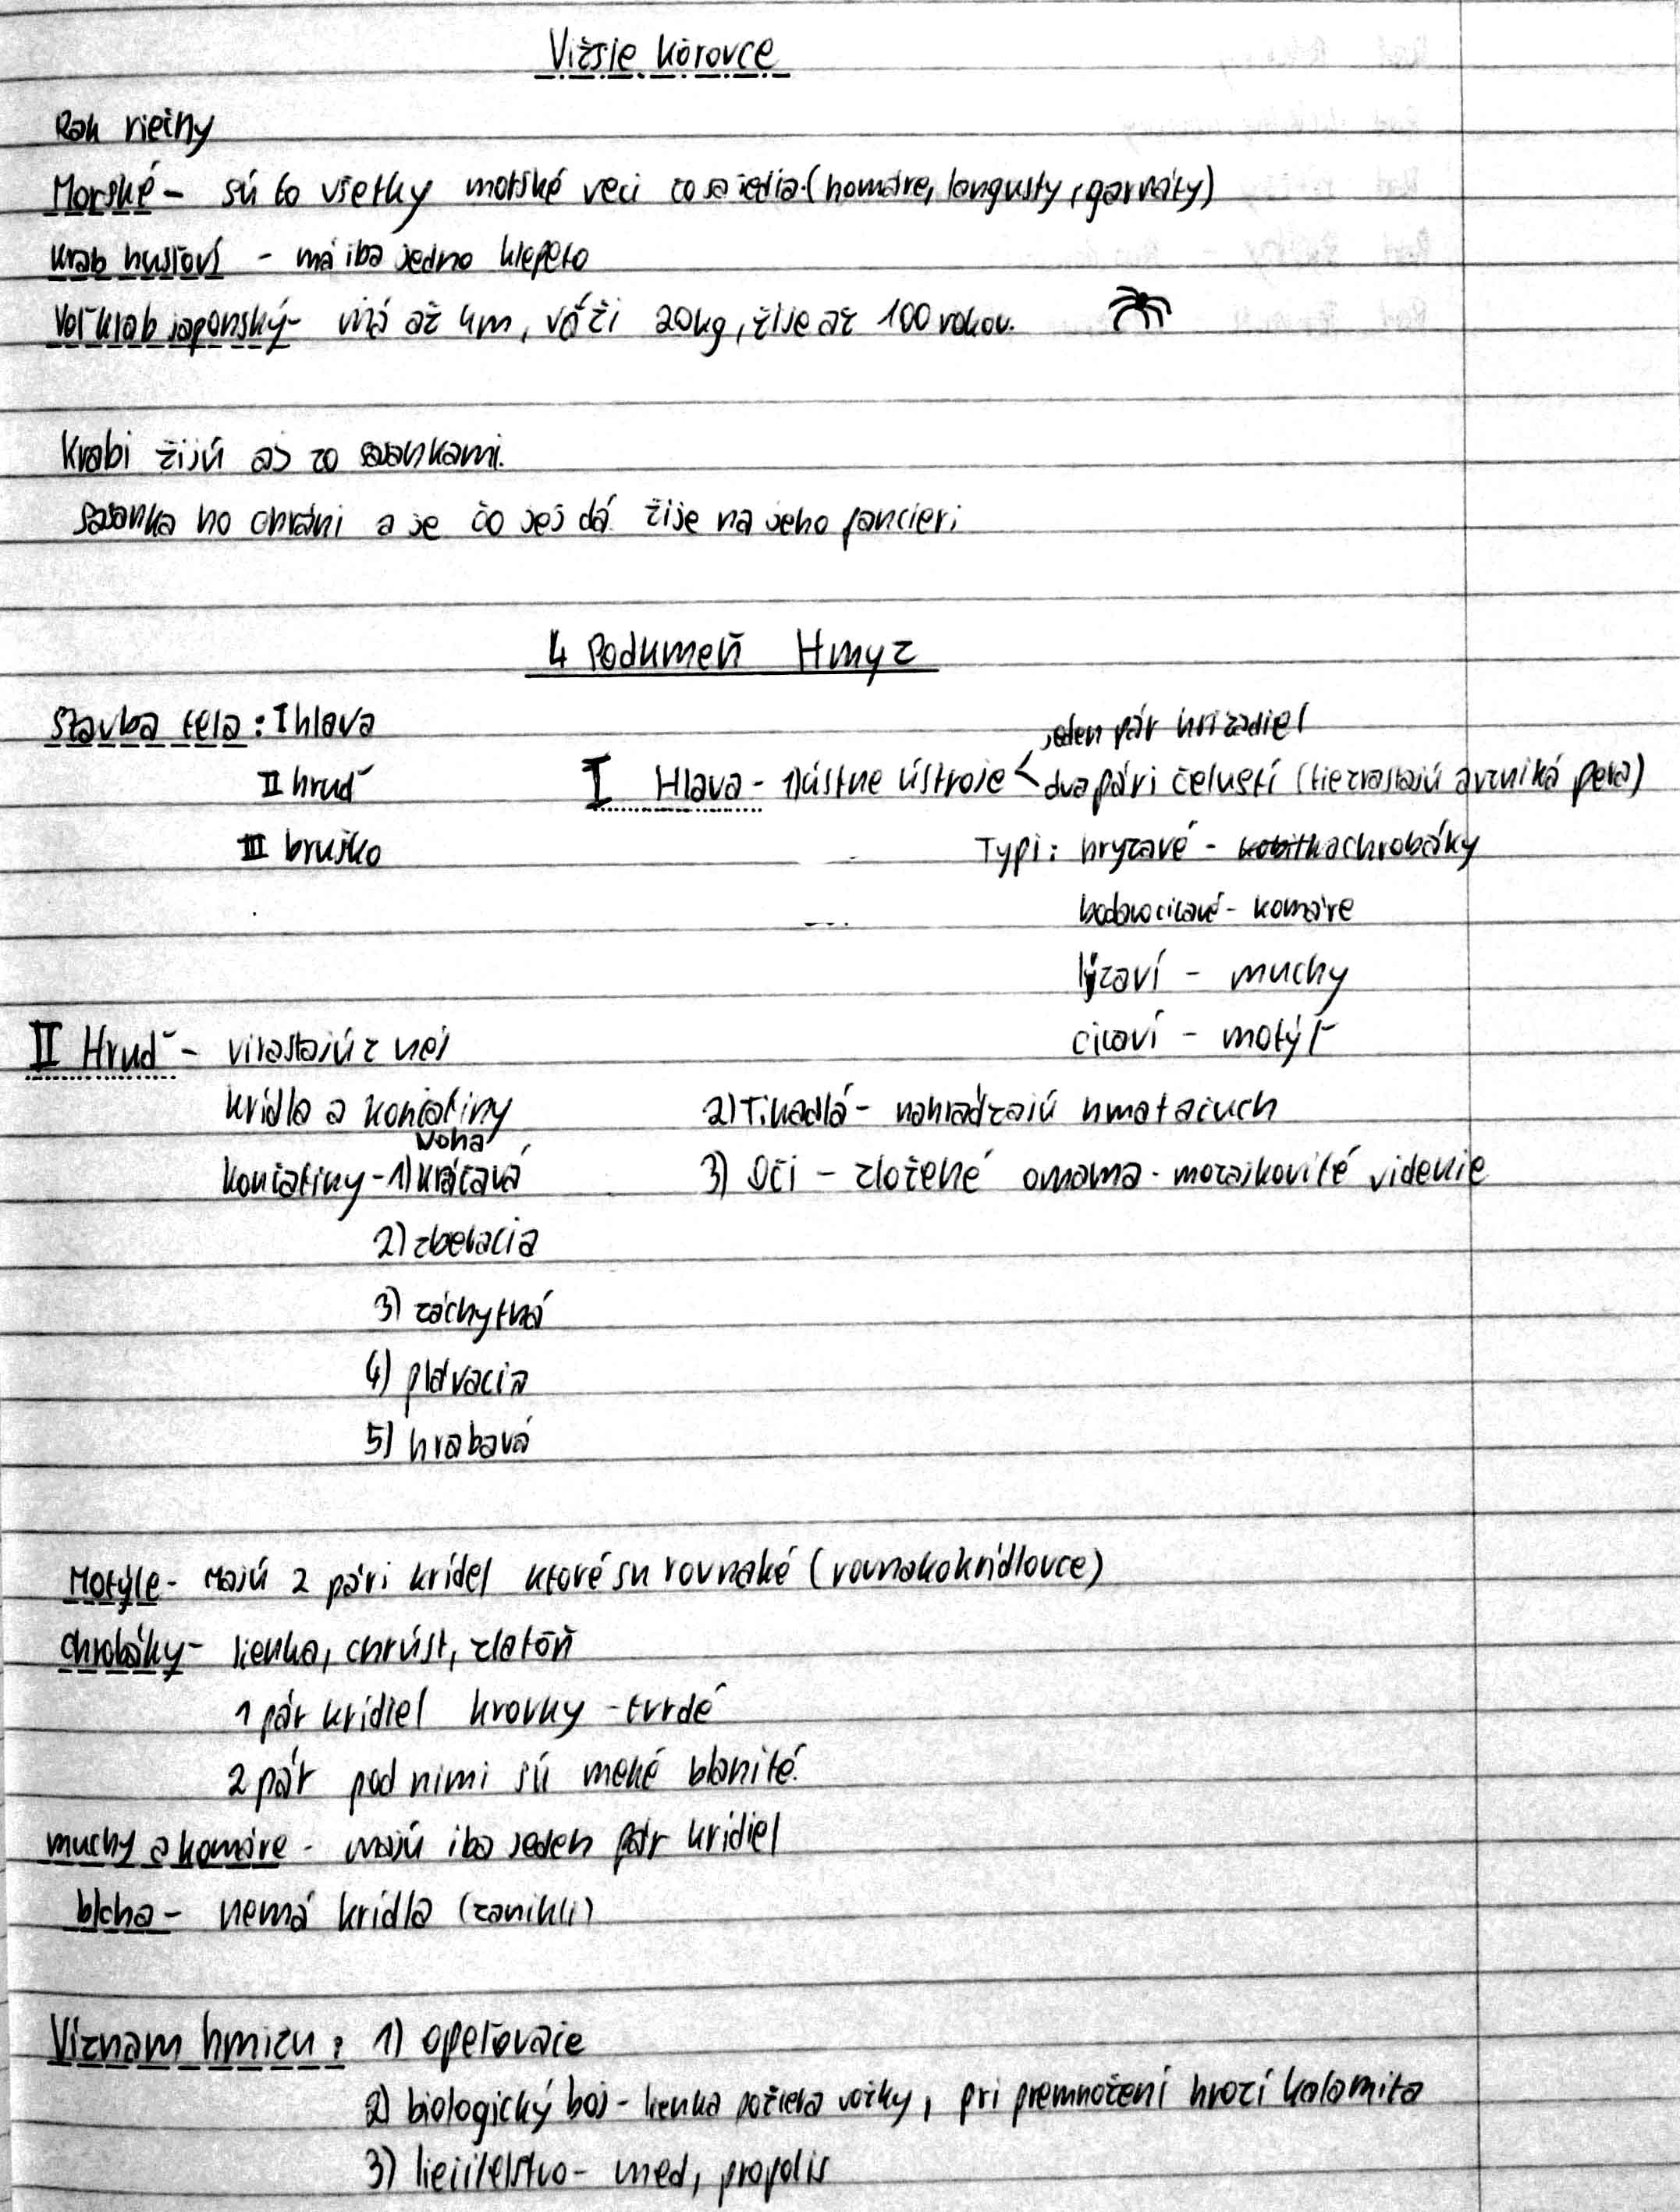 Vižšie kôrovce
Rak riečny
Morské - sú to všetky morské veci čo sa jedia (homáre, langusty, garnáty)
Krab husľoví - má iba jedno klepeto
Veľkrab japonský - má až 4m, váži 20kg, žije až 100 rokov.
Krabi žijú aj zo sasankami.
sasanka ho chráni a je čo jej dá žije na jeho pancieri
4 Podkmeň Hmyz
Stavba tela: I hlava
II hruď
III bruško
jeden pár hrizadiel
I Hlava - 1) ústne ústroje < dva pári čeľustí (tie zrastajú a vzniká pera)
Typi: hryzavé - chrobáky
bodavocicavé - komáre
lízaví - muchy
cicaví - motýľ
II Hruď - virastajú z nej
krídla a končatiny
noha
Končatiny - 1) kráčavá
2) zberacia
3) záchytná
4) plávacia
5) hrabavá
2) Tikadlá - nahrádzajú hmat a čuch
3) Oči - zložené omama - mozajkovité videnie
Motýle - Majú 2 pári krídel ktoré su rovnaké (rovnakokrídlovce)
chrobáky - lienka, chrúst, zlatôň
1 pár krídiel krovky - tvrdé
2 pár pod nimi sú meké blanité.
muchy a komáre - majú iba jeden pár krídiel
blcha - nemá krídla (zanikli)
Víznam hmizu: 1) opeľovaie
2) biologický boj - lienka požiera vošky, pri premnožení hrozí kalamita
3) liečiteľstvo - med, propolis